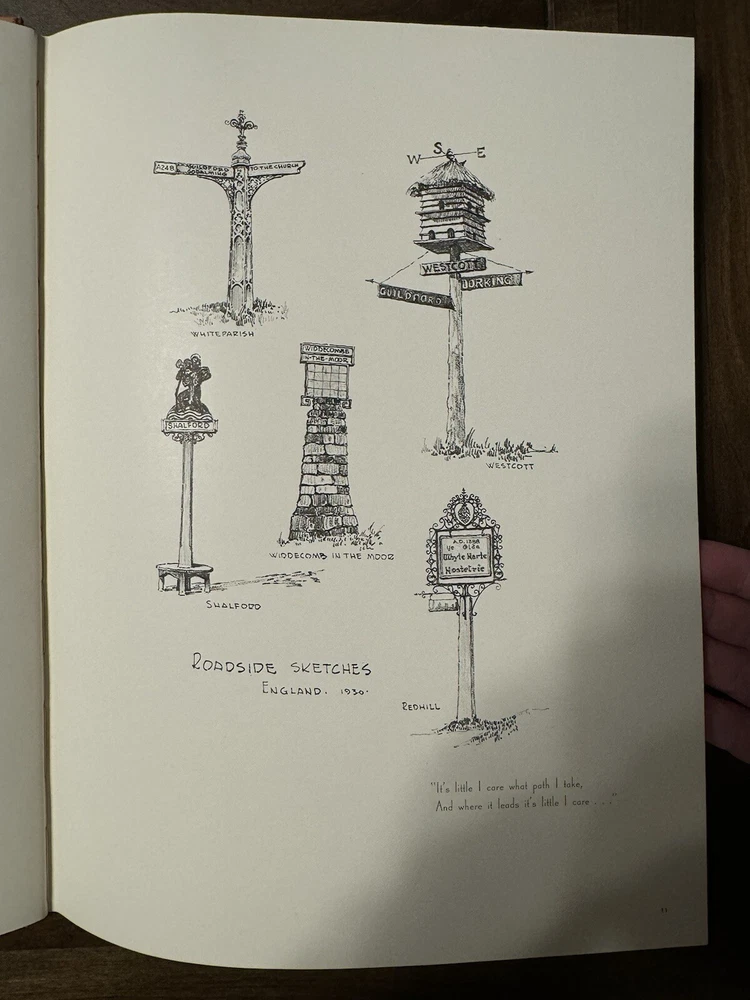 A248
GUILDFORD
GODALMING
TO THE CHURCH
WHITEPARISH
W S E
WESTCOTT
DORKING
GUILDFORD
WESTCOTT
SHALFORD
SHALFORD
WIDDECOMBE
IN-THE-MOOR
WIDDECOMB IN THE MOOR
A.D. 1388
Ye Olde
Whyte Harte
Hostelrie
REDHILL
ROADSIDE SKETCHES
ENGLAND. 1930.
"It's little I care what path I take,
And where it leads it's little I care . . ."